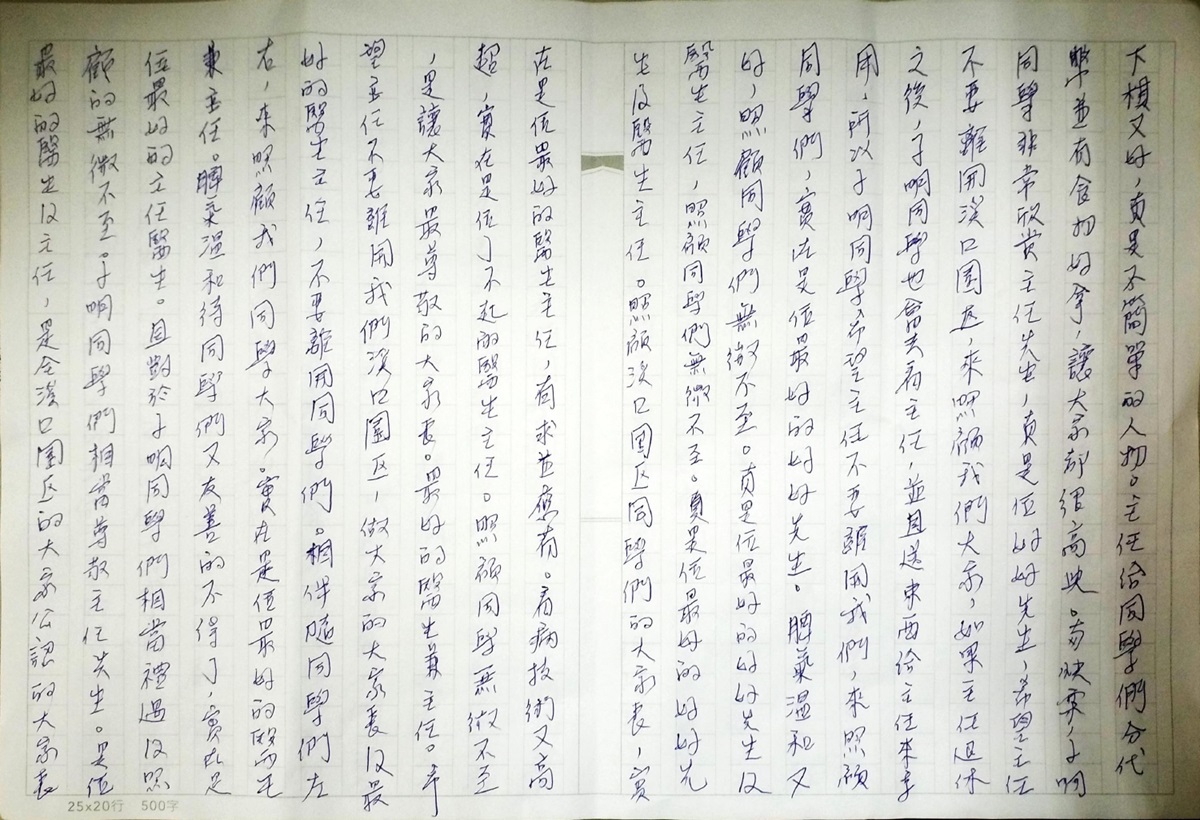 下棋又好，真是不簡單的人物。主任給同學們分代
幣並有食物好拿，讓大家都很高興。有快樂，子明
同學非常欣賞主任先生，真是位好好先生，希望主任
不要離開溪口園區，來照顧我們大家，如果主任退休
之後，子明同學也會去看主任，並且送東西給主任來享
用，所以子明同學希望主任不要離開我們，來照顧
同學們，實在是位最好的好好先生。脾氣溫和又
好，照顧同學們無微不至。真是位最好的好好先生及
醫生主任，照顧同學們無微不至。真是位最好的好好先
生及醫生主任。照顧溪口園区同學們的大家長，實
在是位最好的醫生主任，有求並應有。看病技術又高
超，實在是位了不起的醫生主任。照顧同學無微不至
，是讓大家最尊敬的大家長。最好的醫生兼主任。希
望主任不要離開我們溪口園区，做大家的大家長及最
好的醫生主任，不要離開同學們。相伴隨同學們左
右，來照顧我們同學大家。實在是位最好的醫生
兼主任。脾氣溫和待同學們又友善的不得了，實在是
位最好的主任醫生。且對於子明同學們相當禮遇及照
顧的無微不至。子明同學們相當尊敬主任先生。是位
最好的醫生及主任，是全溪口園区的大家公認的大家長
25x20行 500字